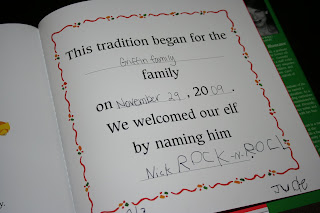 This tradition began for the
Griffin family
family
on November 29, 2009.
We welcomed our elf
by naming him
Nick ROCK-n-ROLL
Jude